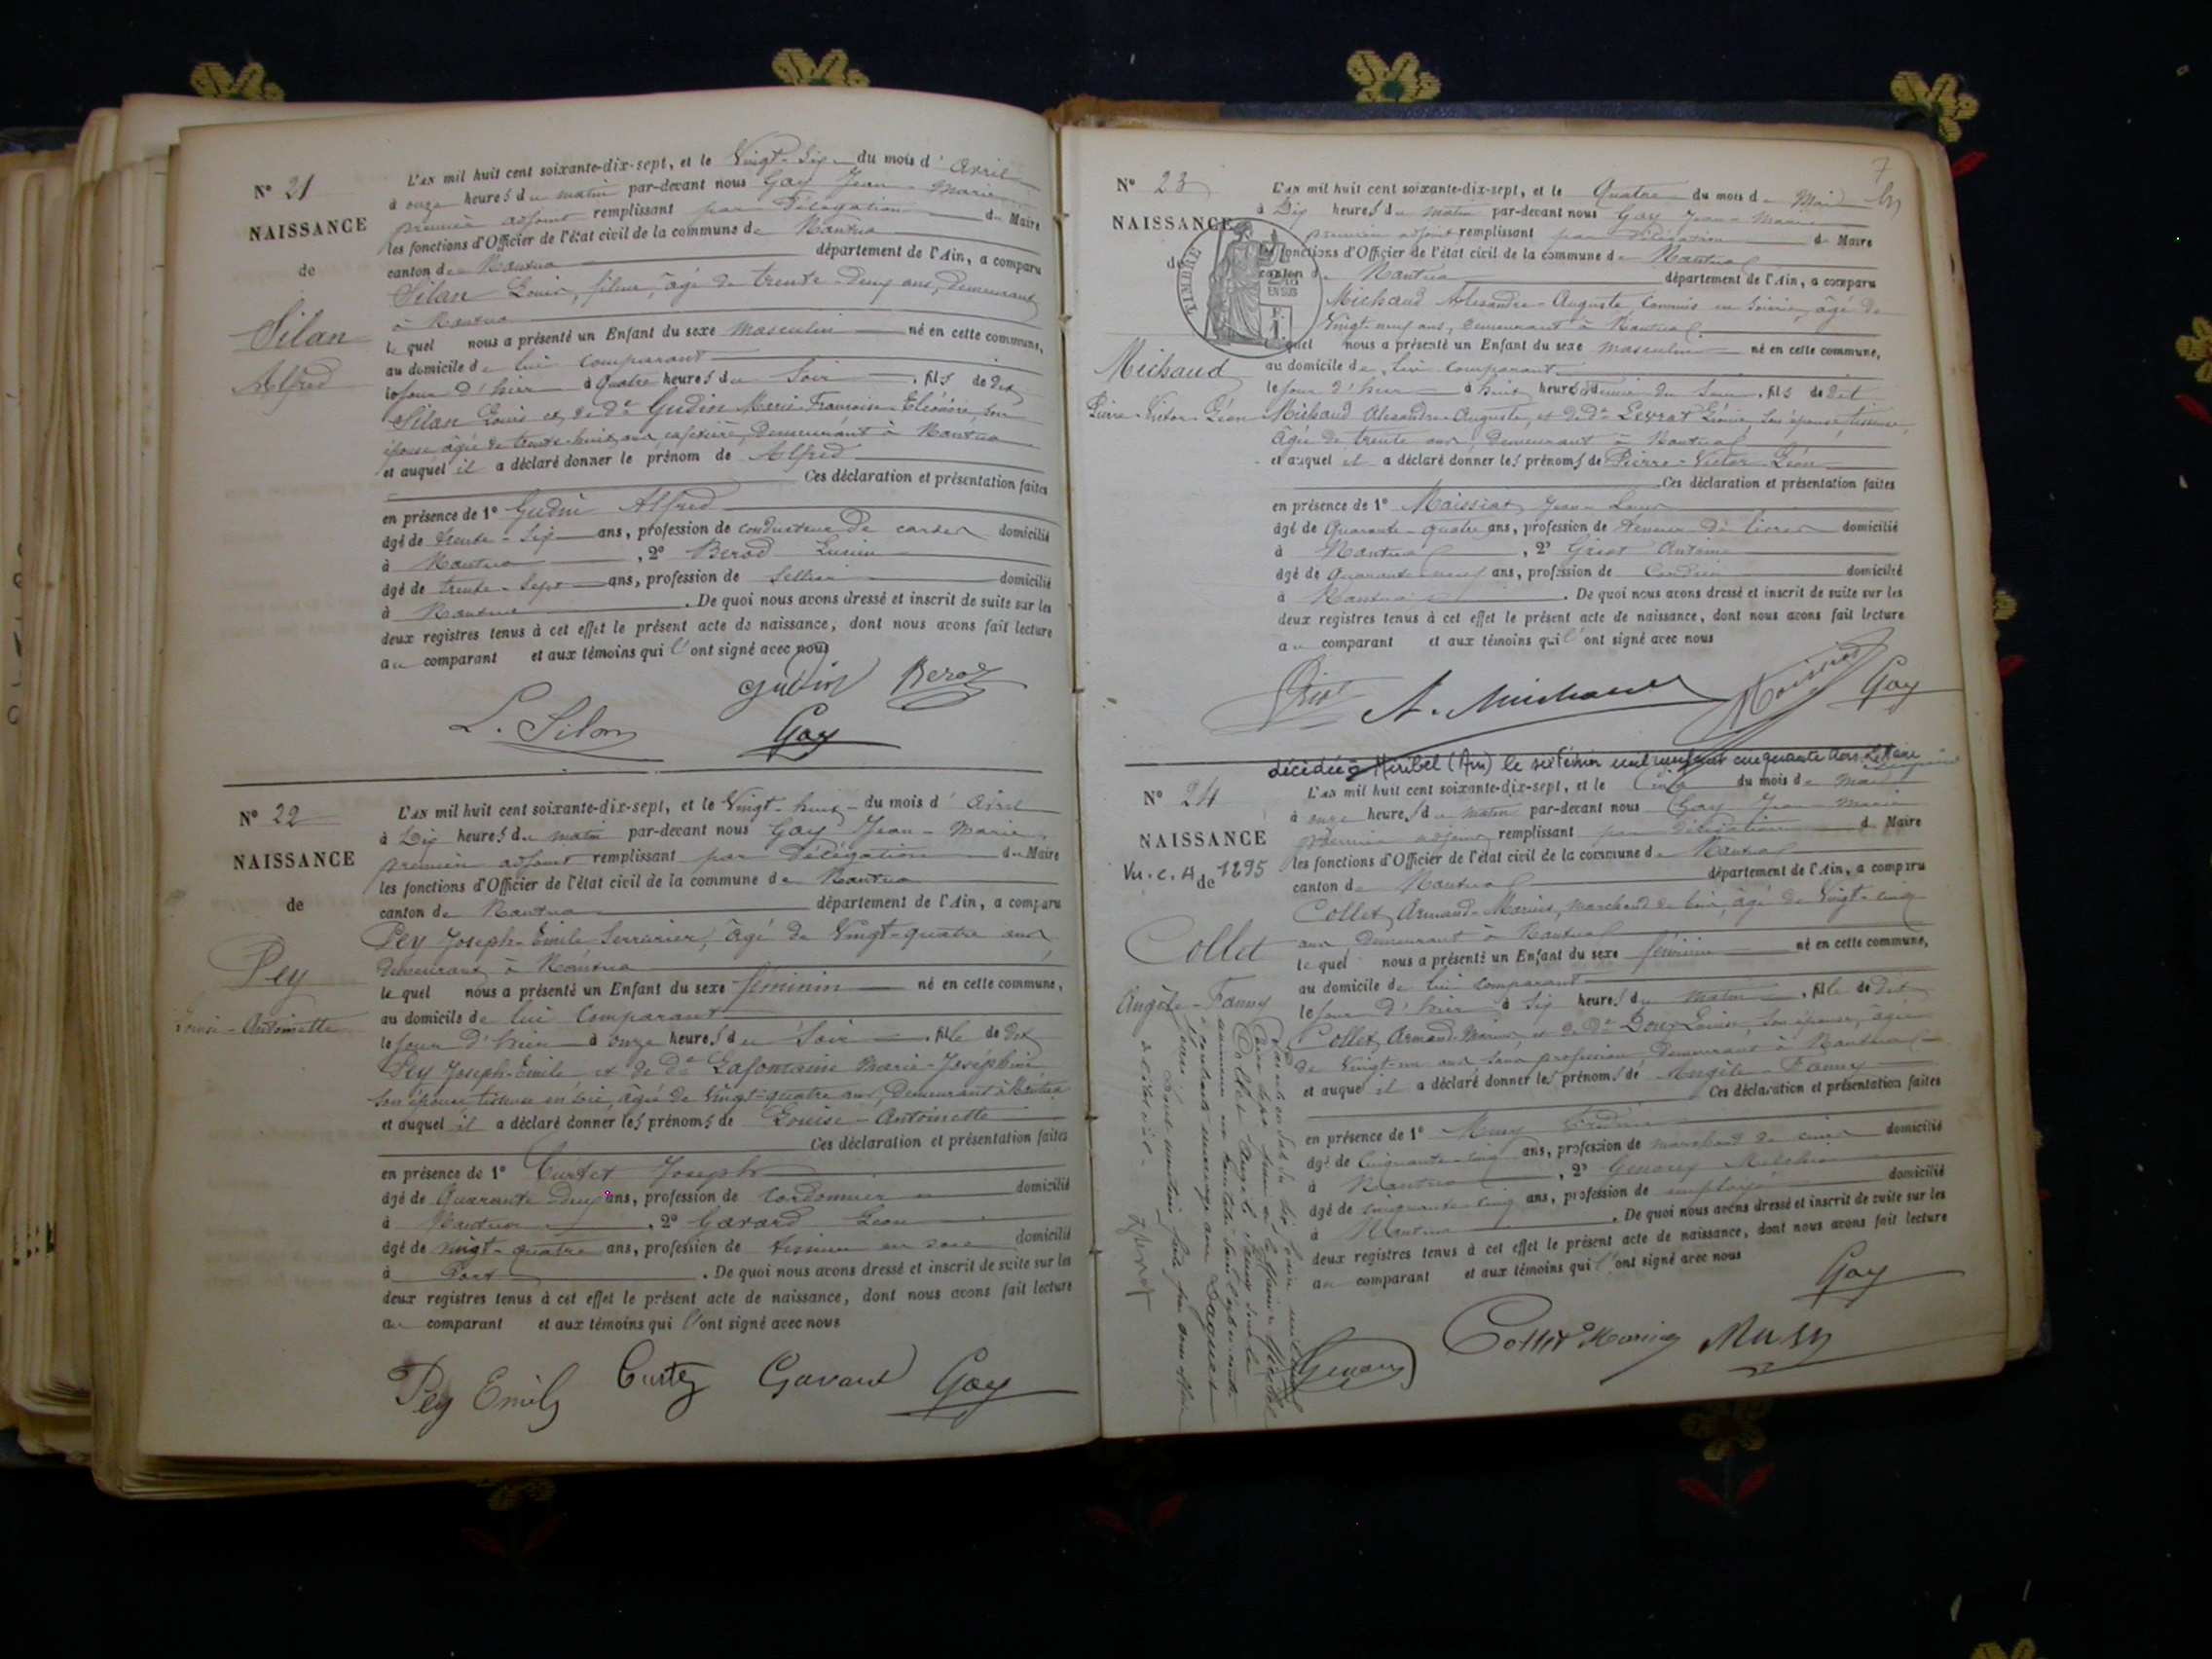 N° 21
NAISSANCE
de
Silan
Alfred
L'AN mil huit cent soixante-dix-sept, et le Vingt-Six du mois d'Avril
à onze heures du matin par-devant nous Gay Jean-Marie
premier adjoint remplissant par délégation du Maire
les fonctions d'Officier de l'état civil de la commune de Nantua
canton de Nantua département de l'Ain, a comparu
Silan Louis, âgé de trente-deux ans, demeurant
à Nantua
lequel nous a présenté un Enfant du sexe masculin né en cette commune,
au domicile de lui comparant
le jour d'hier à quatre heures du Soir, fils de dit
Silan Louis et de De Gudin Marie Françoise Eléonore, son
épouse, âgée de trente-huit ans, cafetière, demeurant à Nantua
et auquel il a déclaré donner le prénom de Alfred
Ces déclaration et présentation faites
en présence de 1° Gudin Alfred
âgé de trente-six ans, profession de conducteur de cardes domicilié
à Nantua, 2° Berod Lucien
âgé de trente-sept ans, profession de Sellier domicilié
à Nantua. De quoi nous avons dressé et inscrit de suite sur les
deux registres tenus à cet effet le présent acte de naissance, dont nous avons fait lecture
au comparant et aux témoins qui l'ont signé avec nous
Gudin Berod
L. Silan Gay
N° 22
NAISSANCE
de
Pey
Louise-Antoinette
L'AN mil huit cent soixante-dix-sept, et le Vingt-huit du mois d'Avril
à Dix heures du matin par-devant nous Gay Jean-Marie
premier adjoint remplissant par délégation du Maire
les fonctions d'Officier de l'état civil de la commune de Nantua
canton de Nantua département de l'Ain, a comparu
Pey Joseph-Emile Serrurier, âgé de Vingt-quatre ans
demeurant à Nantua
lequel nous a présenté un Enfant du sexe féminin né en cette commune,
au domicile de lui Comparant
le jour d'hier à onze heures du Soir, fille de dit
Pey Joseph-Emile et de De Lafontaine Marie-Joséphine
son épouse, tisseuse en soie, âgée de Vingt-quatre ans, Demeurant à Nantua
et auquel il a déclaré donner les prénoms de Louise-Antoinette
Ces déclaration et présentation faites
en présence de 1° Curtet Joseph
âgé de Quarante-deux ans, profession de Cordonnier domicilié
à Nantua, 2° Gavard Léon
âgé de vingt-quatre ans, profession de tisseur en soie domicilié
à Port. De quoi nous avons dressé et inscrit de suite sur les
deux registres tenus à cet effet le présent acte de naissance, dont nous avons fait lecture
au comparant et aux témoins qui l'ont signé avec nous
Pey Emile Curtet Gavard Gay
7
N° 23
NAISSANCE
de
TIMBRE
EN SUS
Michaud
Pierre-Victor-Léon
L'AN mil huit cent soixante-dix-sept, et le Quatre du mois de Mai
à Dix heures du matin par-devant nous Gay Jean-Marie
premier adjoint remplissant par délégation du Maire
les fonctions d'Officier de l'état civil de la commune de Nantua
canton de Nantua département de l'Ain, a comparu
Michaud Alexandre-Auguste, Commis en soierie, âgé de
Vingt-neuf ans, demeurant à Nantua
lequel nous a présenté un Enfant du sexe masculin né en cette commune,
au domicile de lui comparant
le jour d'hier à huit heures et demie du Soir, fils de dit
Michaud Alexandre-Auguste, et de De Levrat Léonie, son épouse, tisseuse,
âgée de trente ans, demeurant à Nantua
et auquel il a déclaré donner les prénoms de Pierre-Victor-Léon
Ces déclaration et présentation faites
en présence de 1° Maissiat Jean-Louis
âgé de Quarante-quatre ans, profession de teneur de livres domicilié
à Nantua, 2° Griot Antoine
âgé de Quarante-neuf ans, profession de domicilié
à Nantua. De quoi nous avons dressé et inscrit de suite sur les
deux registres tenus à cet effet le présent acte de naissance, dont nous avons fait lecture
au comparant et aux témoins qui l'ont signé avec nous
Griot A. Michaud Maissiat Gay
décédée à Miribel (Ain) le six Février mil neuf cent cinquante Le Maire
N° 24
NAISSANCE
Vu. c. A 1295
de
Collet
Angèle-Fanny
L'AN mil huit cent soixante-dix-sept, et le Cinq du mois de mai
à onze heures du matin par-devant nous Gay Jean-Marie
premier adjoint remplissant par délégation du Maire
les fonctions d'Officier de l'état civil de la commune de Nantua
canton de Nantua département de l'Ain, a comparu
Collet Armand-Marius, marchand de âgé de Vingt-cinq
ans, demeurant à Nantua
lequel nous a présenté un Enfant du sexe féminin né en cette commune,
au domicile de lui comparant
le jour d'hier à six heures du matin, fille de dit
Collet Armand-Marius et de De Doux Louise, son épouse, âgée
de Vingt-un ans sans profession, demeurant à Nantua
et auquel il a déclaré donner les prénoms de Angèle-Fanny
Ces déclaration et présentation faites
en présence de 1° Musy
âgé de Cinquante-cinq ans, profession de marchand de domicilié
à Nantua, 2° Genoux Melchior
âgé de cinquante-cinq ans, profession de employé domicilié
à Nantua. De quoi nous avons dressé et inscrit de suite sur les
deux registres tenus à cet effet le présent acte de naissance, dont nous avons fait lecture
au comparant et aux témoins qui l'ont signé avec nous
Gay
Genoux Collet Marius Musy
Collet Angèle Fanny
a contracté mariage avec